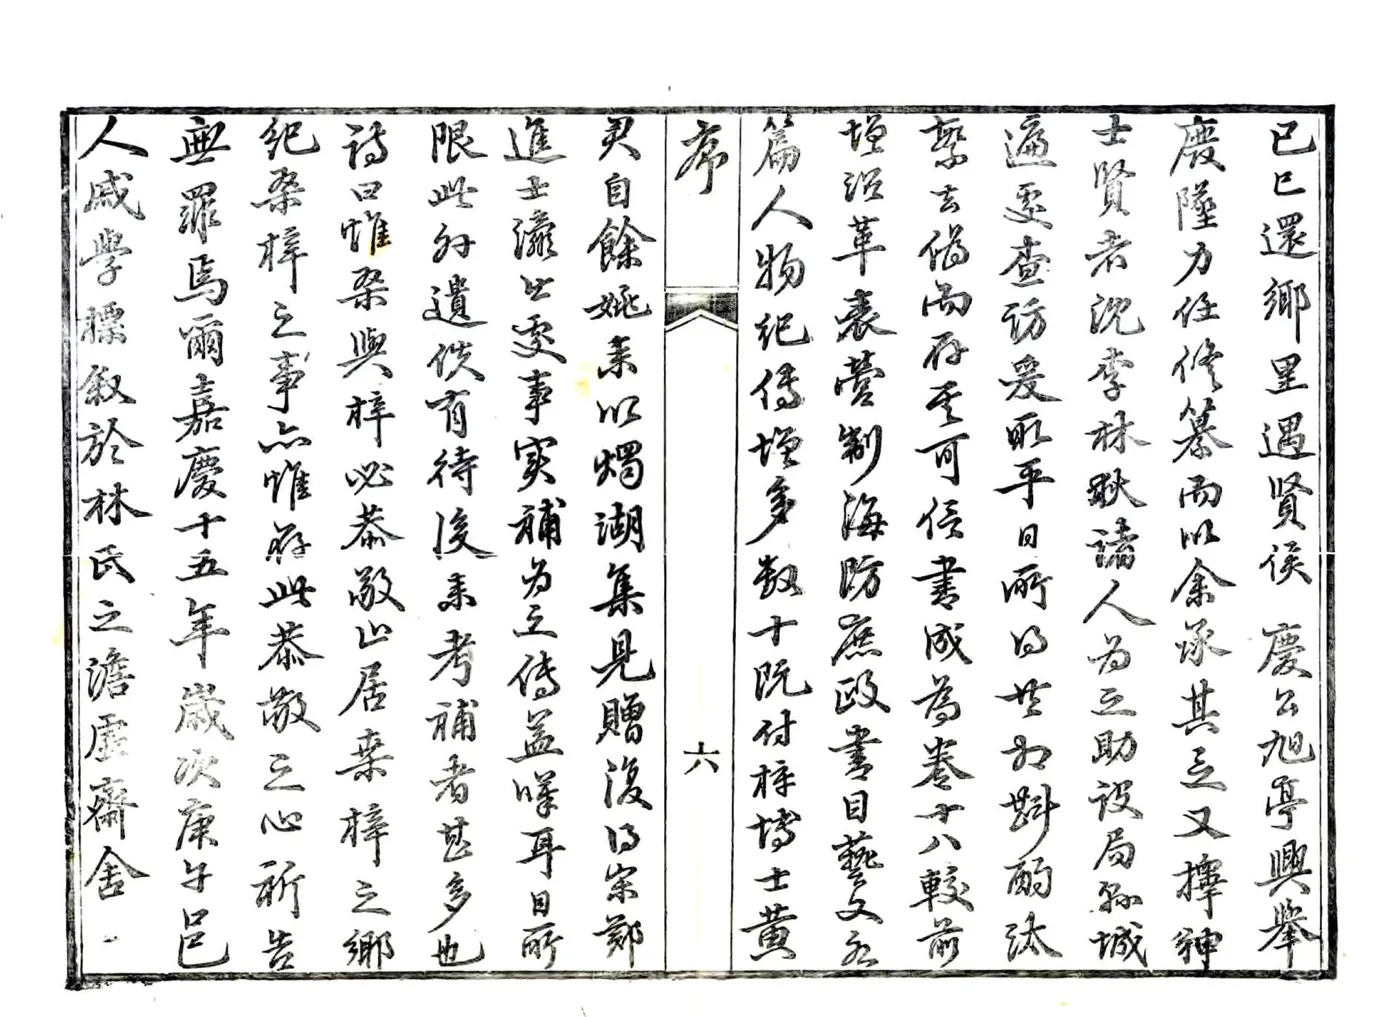 己巳還鄉里遇賢侯慶公旭亭興舉
廢墜力任修纂而以余承其乏又擇紳
士賢者沈李林耿諸人為之助設局縣城
遍處查訪爰取平日所得共相斟酌汰
繁去偽而存其可信書成為卷十八較前
增沿革表營制海防庶政書目藝文各
篇人物紀傳增多數十既付梓博士黃
序
六
君自餘姚來以燭湖集見贈復得宋鄭
進士瀛公處事實補為之傳益嘆耳目所
限此外遺佚有待後來考補者甚多也
詩曰惟桑與梓必恭敬止居桑梓之鄉
紀桑梓之事亦惟存此恭敬之心祈告
無罪焉爾嘉慶十五年歲次庚午邑
人戚學標叙於林氏之澹虛齋舍